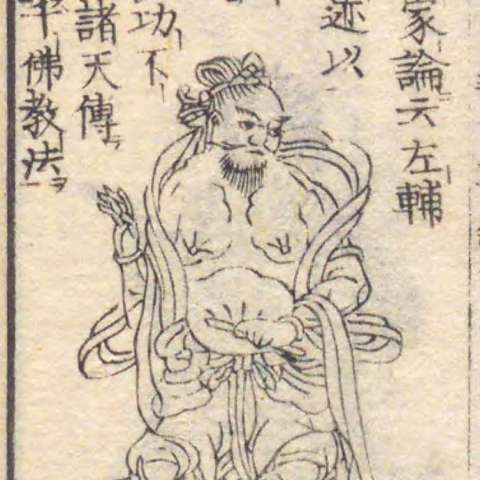 家論云左輔
迹以
功不
諸天傳
佛教法ヲ